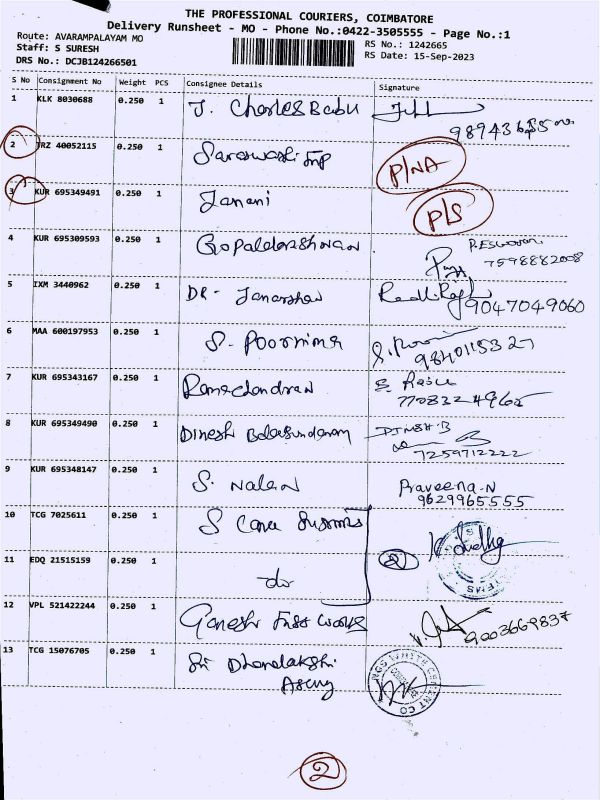 THE PROFESSIONAL COURIERS, COIMBATORE
Delivery Runsheet - MO - Phone No.:0422-3505555 - Page No.:1
Route: AVARAMPALAYAM MO
Staff: S SURESH
DRS No.: DCJB124266501
RS No.: 1242665
RS Date: 15-Sep-2023
S No Consignment No Weight PCS Consignee Details Signature
1 KLK 8030688 0.250 1 J. Charles Babu
2 TRZ 40052115 0.250 1 P/NA
3 KUR 695349491 0.250 1 Janani P/S
4 KUR 695309593 0.250 1 P.Eswari
7598882008
5 IXM 3440962 0.250 1 DR- Janarshan 9047049060
6 MAA 600197953 0.250 1 S. Poornima 9840115327
7 KUR 695343167 0.250 1 Ramachandran
8 KUR 695349490 0.250 1 Dinesh Balasundaram DINESH.B
7259712222
9 KUR 695348147 0.250 1 S. Nalan Praveena-N
9629965555
10 TCG 7025611 0.250 1
11 EDQ 21515159 0.250 1 do 2
12 VPL 521422244 0.250 1 Ganesh Inst Works 9003669837
13 TCG 15076705 0.250 1 Sri Dhanalakshi
2